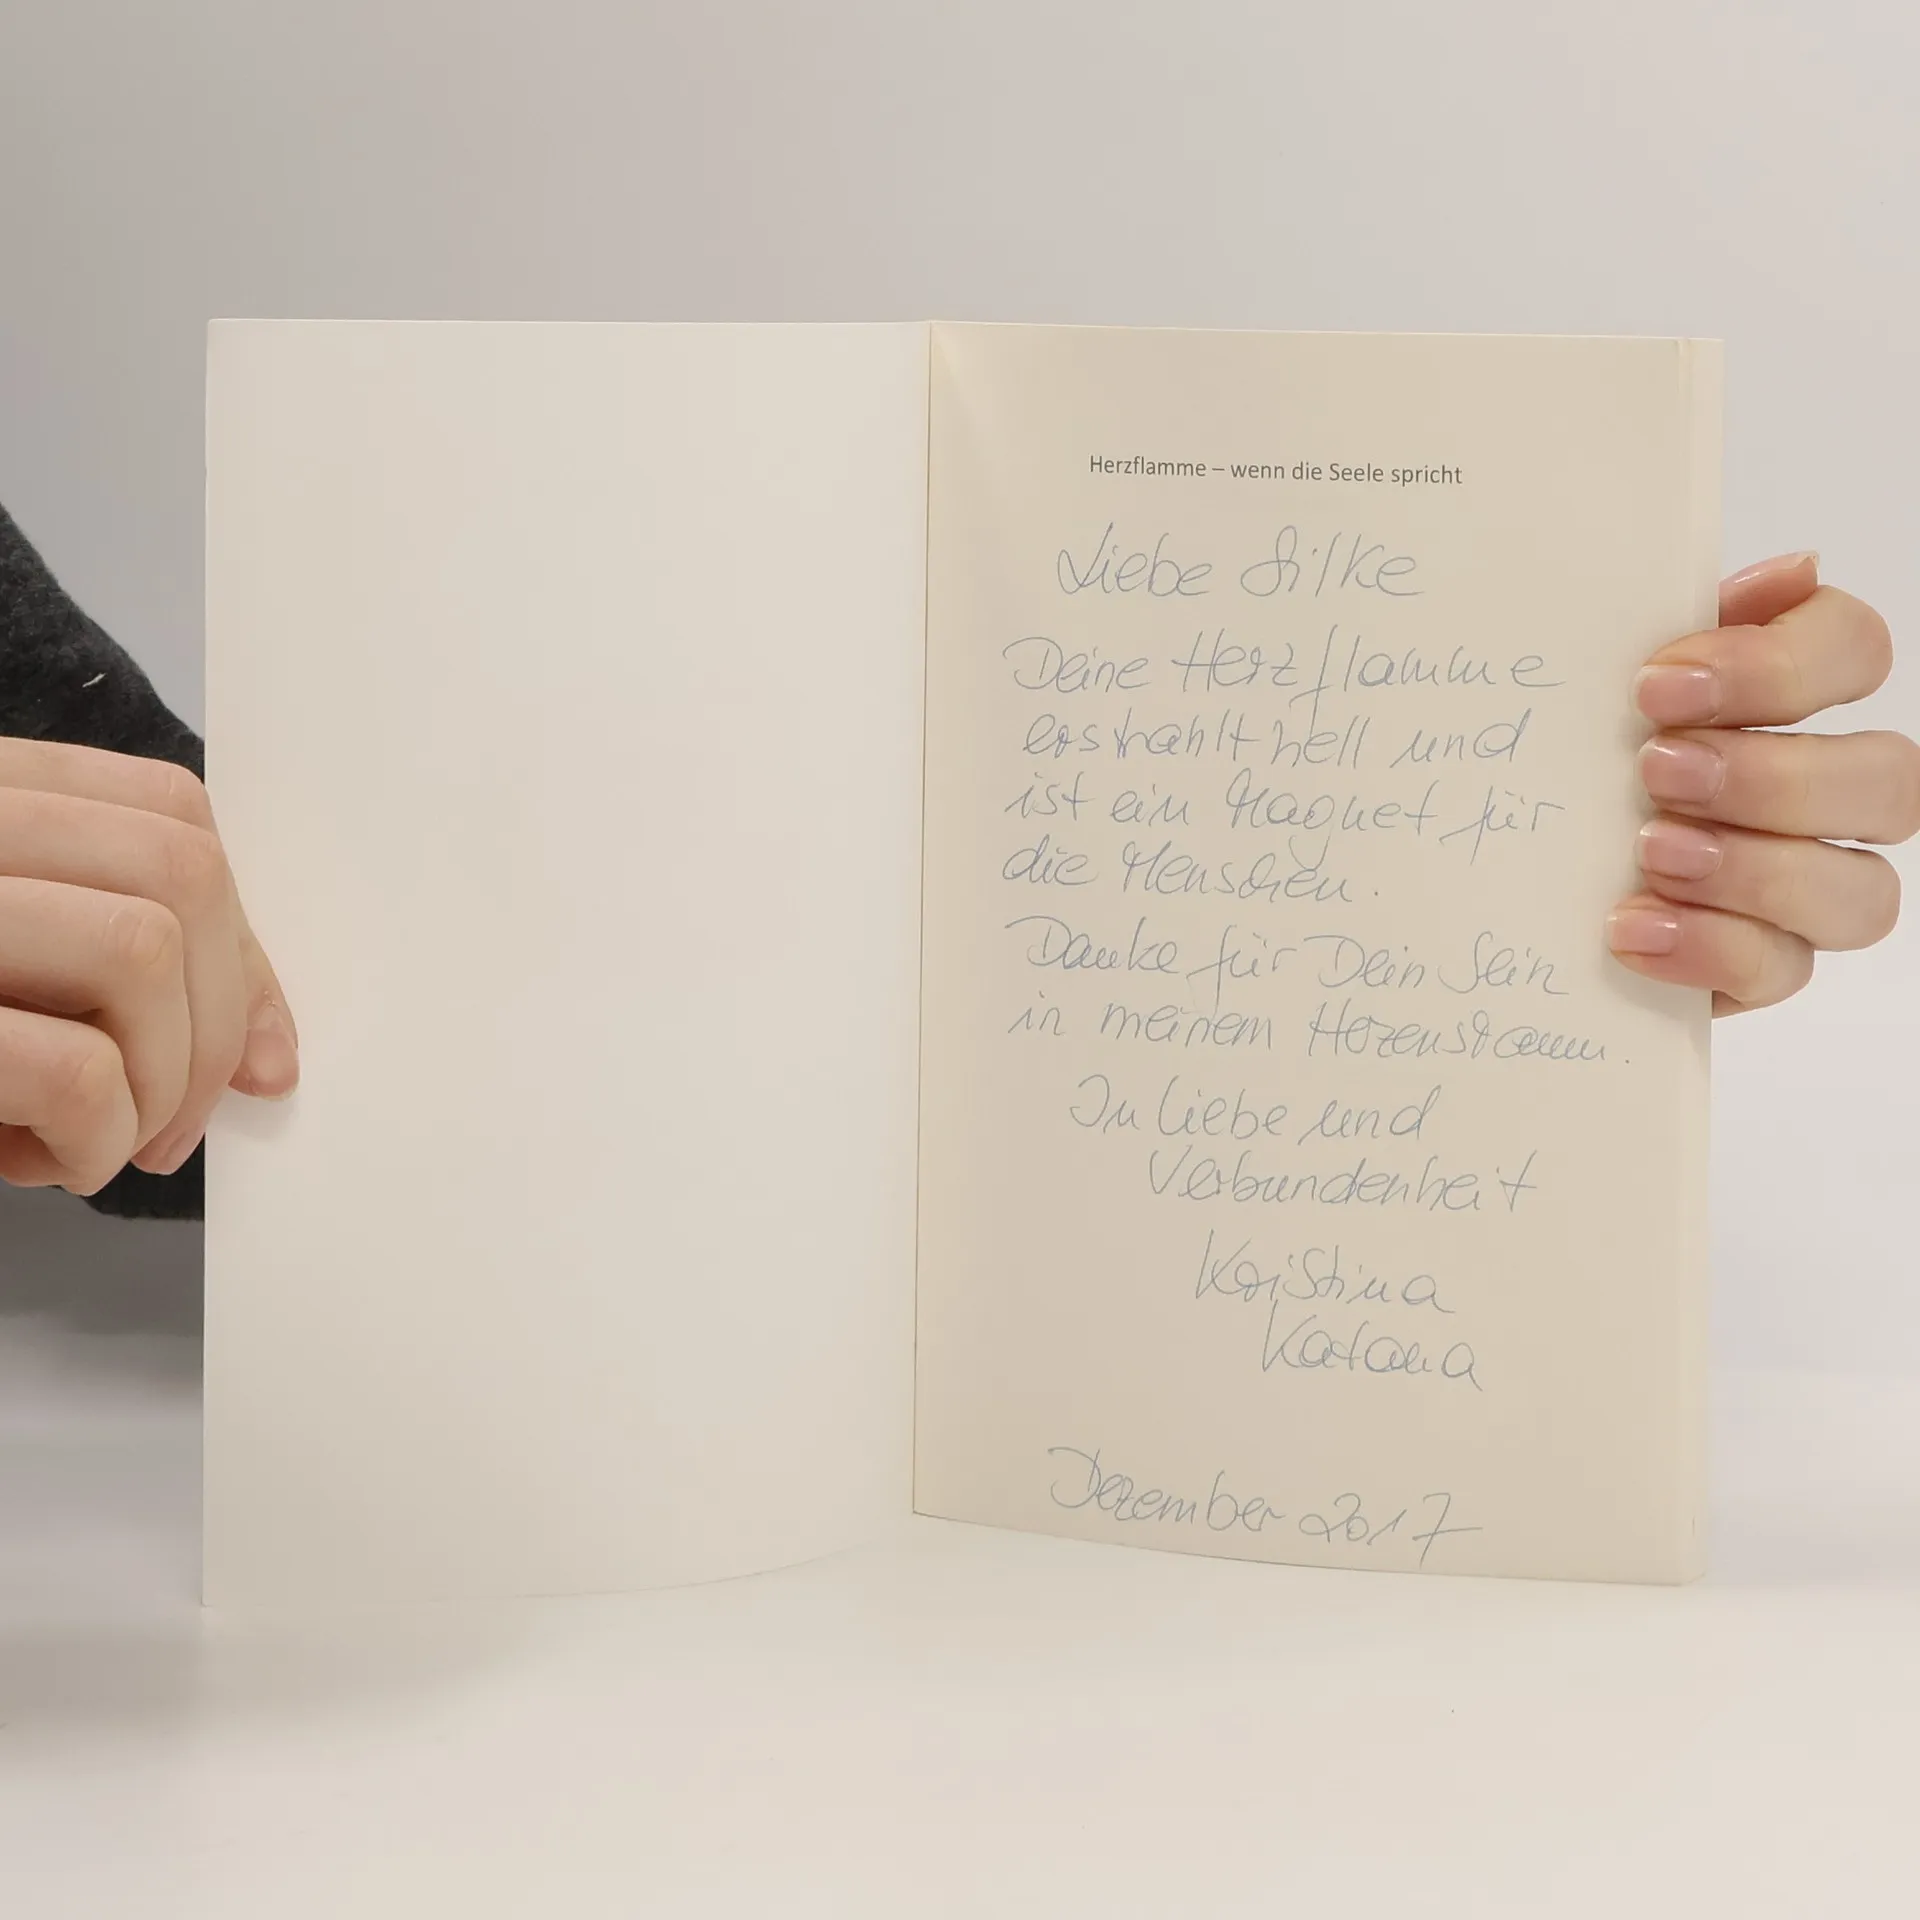 Herzflamme – wenn die Seele spricht
Liebe Silke
Deine Herzflamme
erstrahlt hell und
ist ein Magnet für
die Menschen.
Danke für Dein Sein
in meinem
In Liebe und
Verbundenheit
Kristina
Dezember 2017